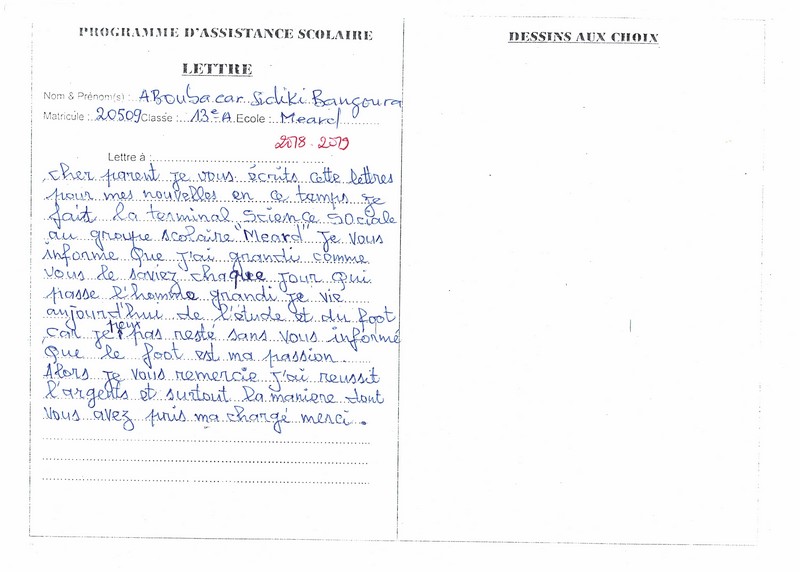 PROGRAMME D'ASSISTANCE SCOLAIRE
LETTRE
Nom & Prénom(s) : ABoubacar Sidiki Bangoura
Matricule : 20509 Classe : 13e A Ecole : Meard
2018-2019
Lettre à :
cher parent je vous écrits cette lettres
pour mes nouvelles en ce temps je
fait la terminal Science Sociale
au groupe scolaire "Meard" je vous
informe Que j'ai grandi comme
vous le saviez chaque jour Qui
passe l'homme grandi je vie
aujourd'hui de l'étude et du foot
car je peux pas resté sans vous informé
Que le foot est ma passion.
Alors je vous remercie j'ai reussit
l'argents et surtout la maniere dont
vous avez pris ma chargé merci.
DESSINS AUX CHOIX